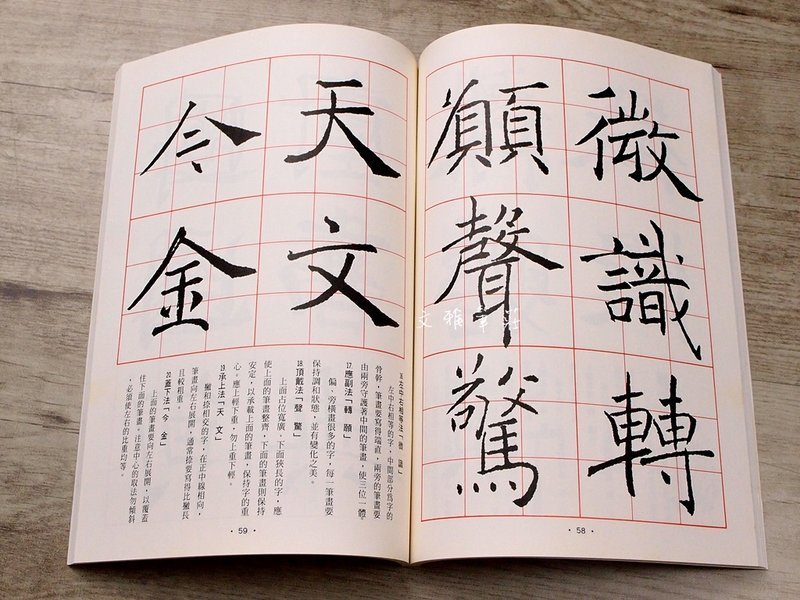 微識轉
願聲驚
・58・
天文
今金
16.左中右相等法「微 識」
左中右相等的字，中間部分為字的
骨幹，筆畫要寫得端直，兩旁的筆畫要
由兩旁守護著中間的筆畫，使三位一體。
17.應副法「轉 願」
偏、旁橫畫很多的字，每一筆畫要
保持調和狀態，並有變化之美。
18.頂戴法「聲 驚」
上面占位寬廣、下面狹長的字，應
使上面的筆畫整齊，下面的筆畫則保持
安定，以承載上面的筆畫，保持字的重
心。應上輕下重，勿上重下輕。
19.承上法「天 文」
撇和捺相交的字，在正中線相向，
筆畫向左右展開，通常捺要寫得比撇長
且較粗重。
20.蓋下法「今 金」
上面的筆畫要向左右展開，以覆蓋
住下面的筆畫。注意中心的取法勿傾斜
，必須使左右的比重均等。
・59・
文雅筆莊